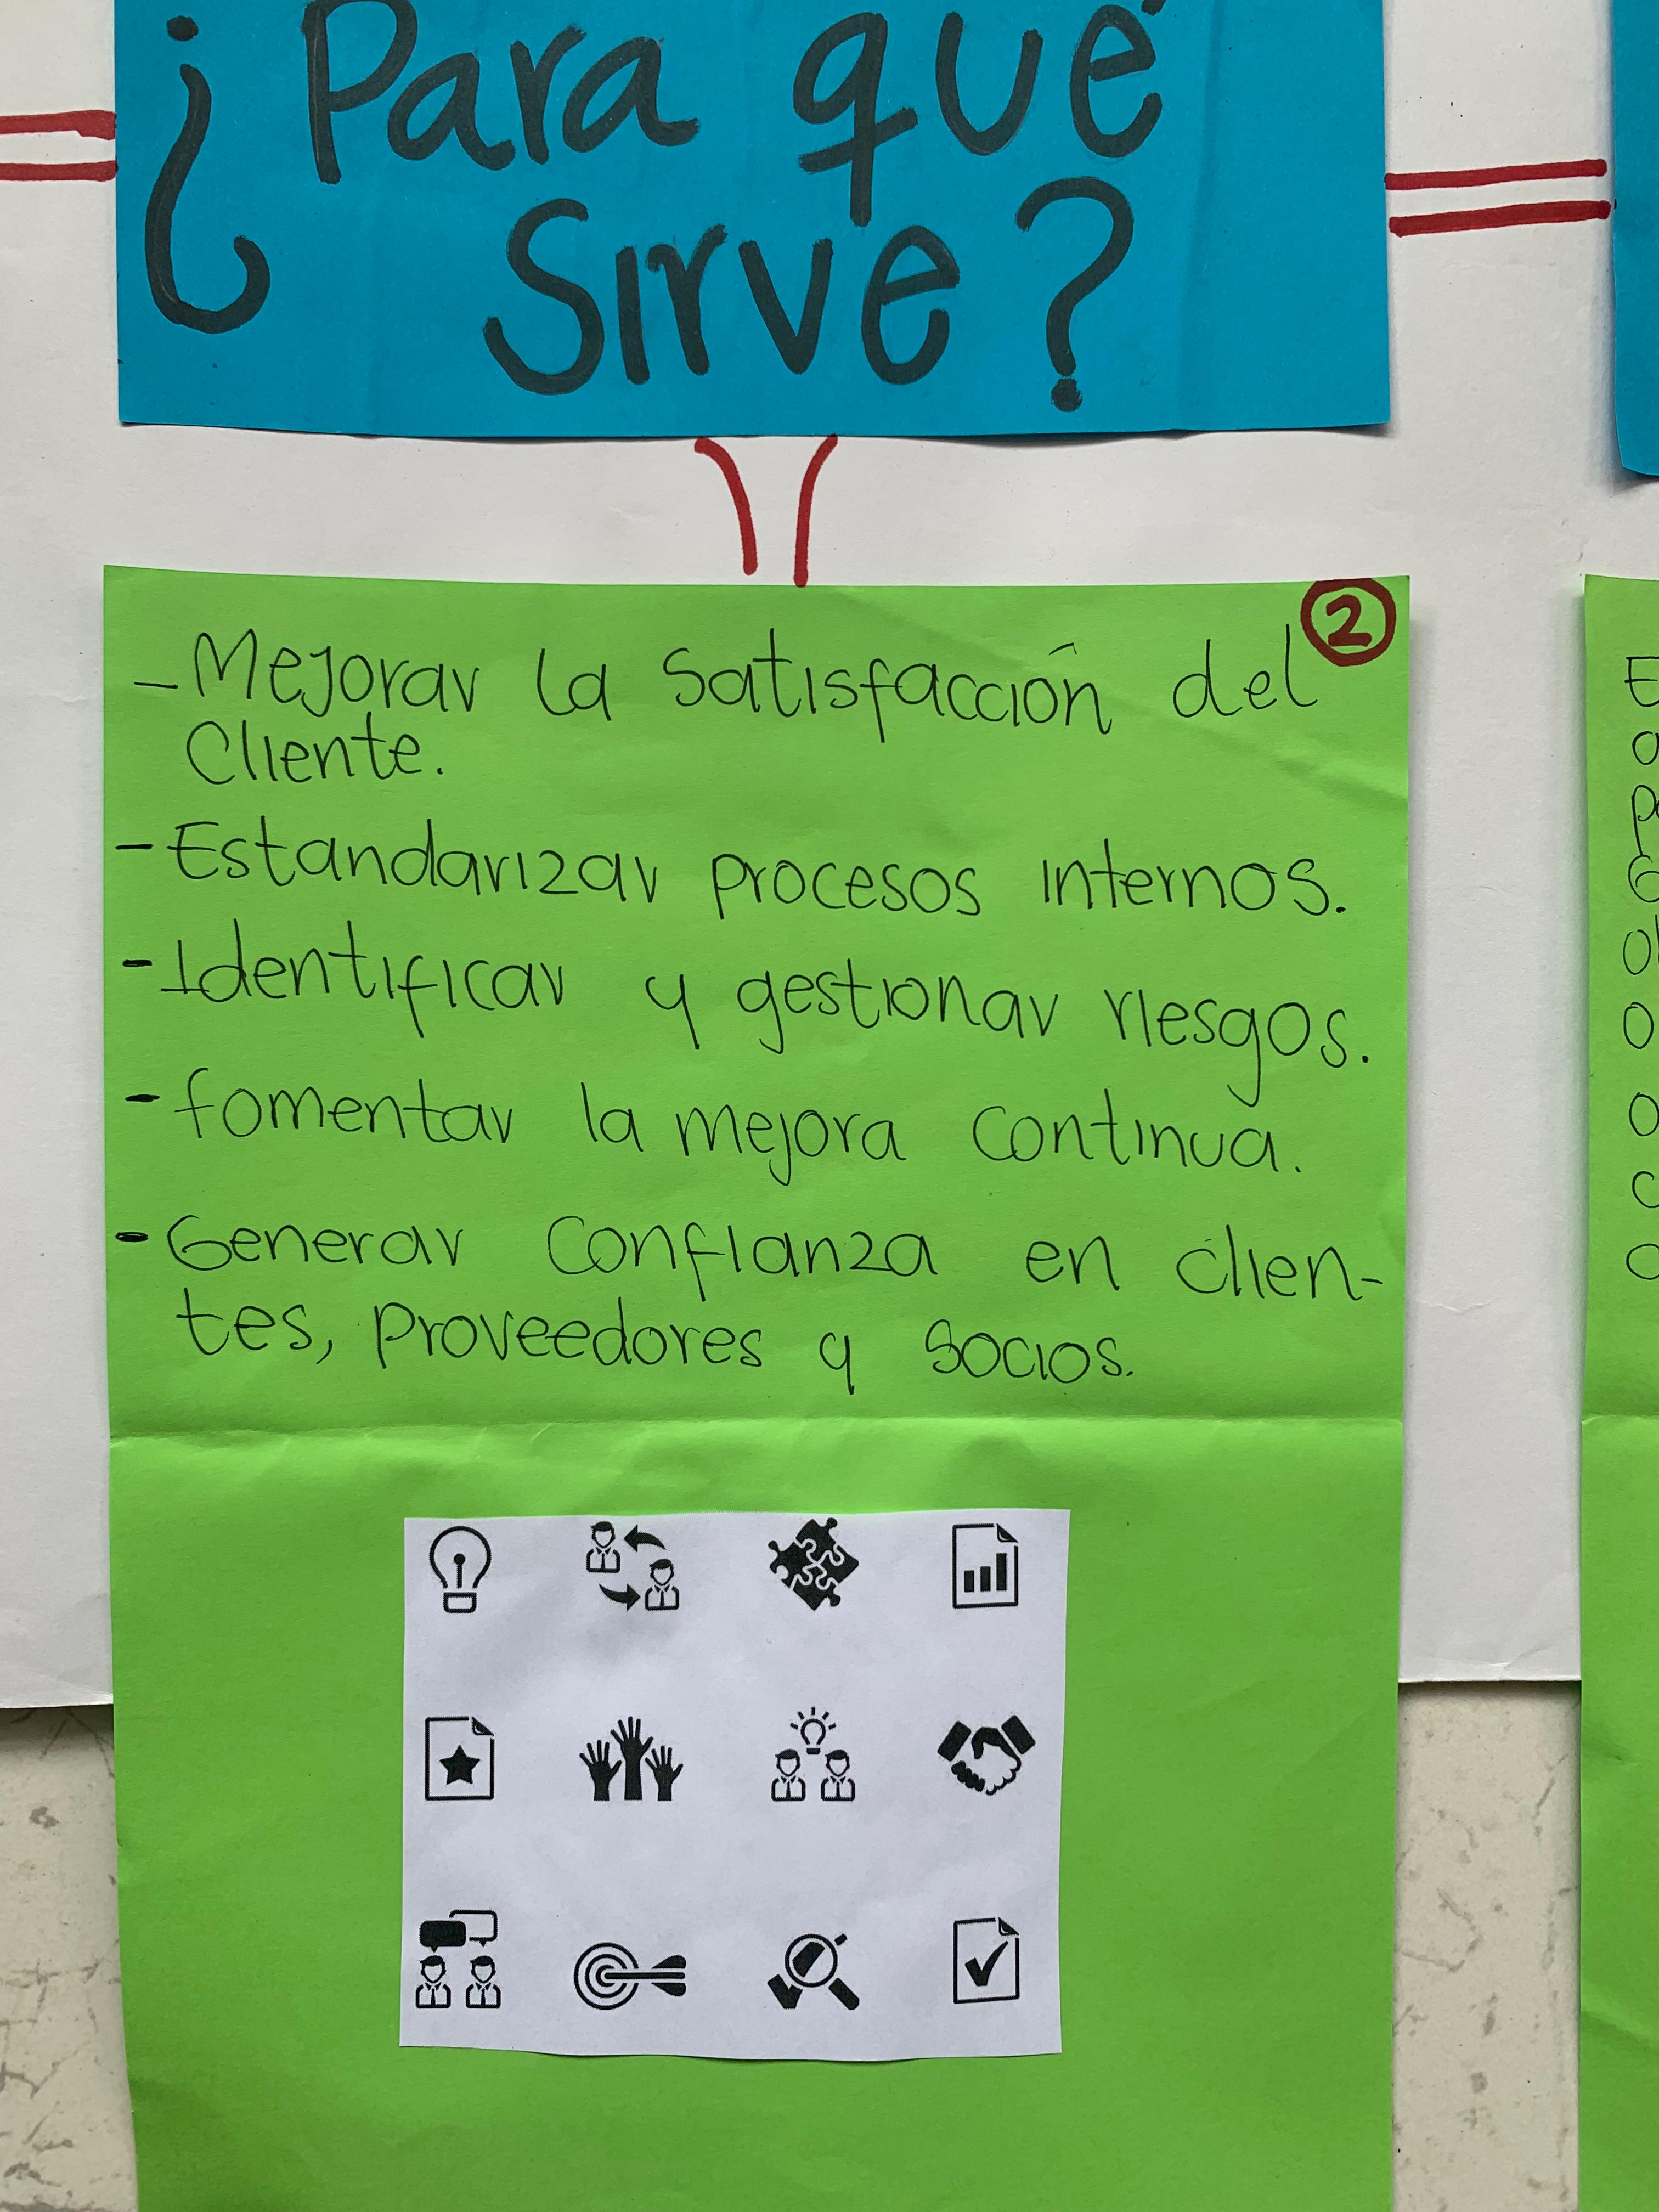 ¿Para qué
sirve?
2
- Mejorar la satisfacción del
cliente.
- Estandarizar procesos internos.
- Identificar y gestionar riesgos.
- fomentar la mejora continua.
- Generar confianza en clien-
tes, proveedores y socios.